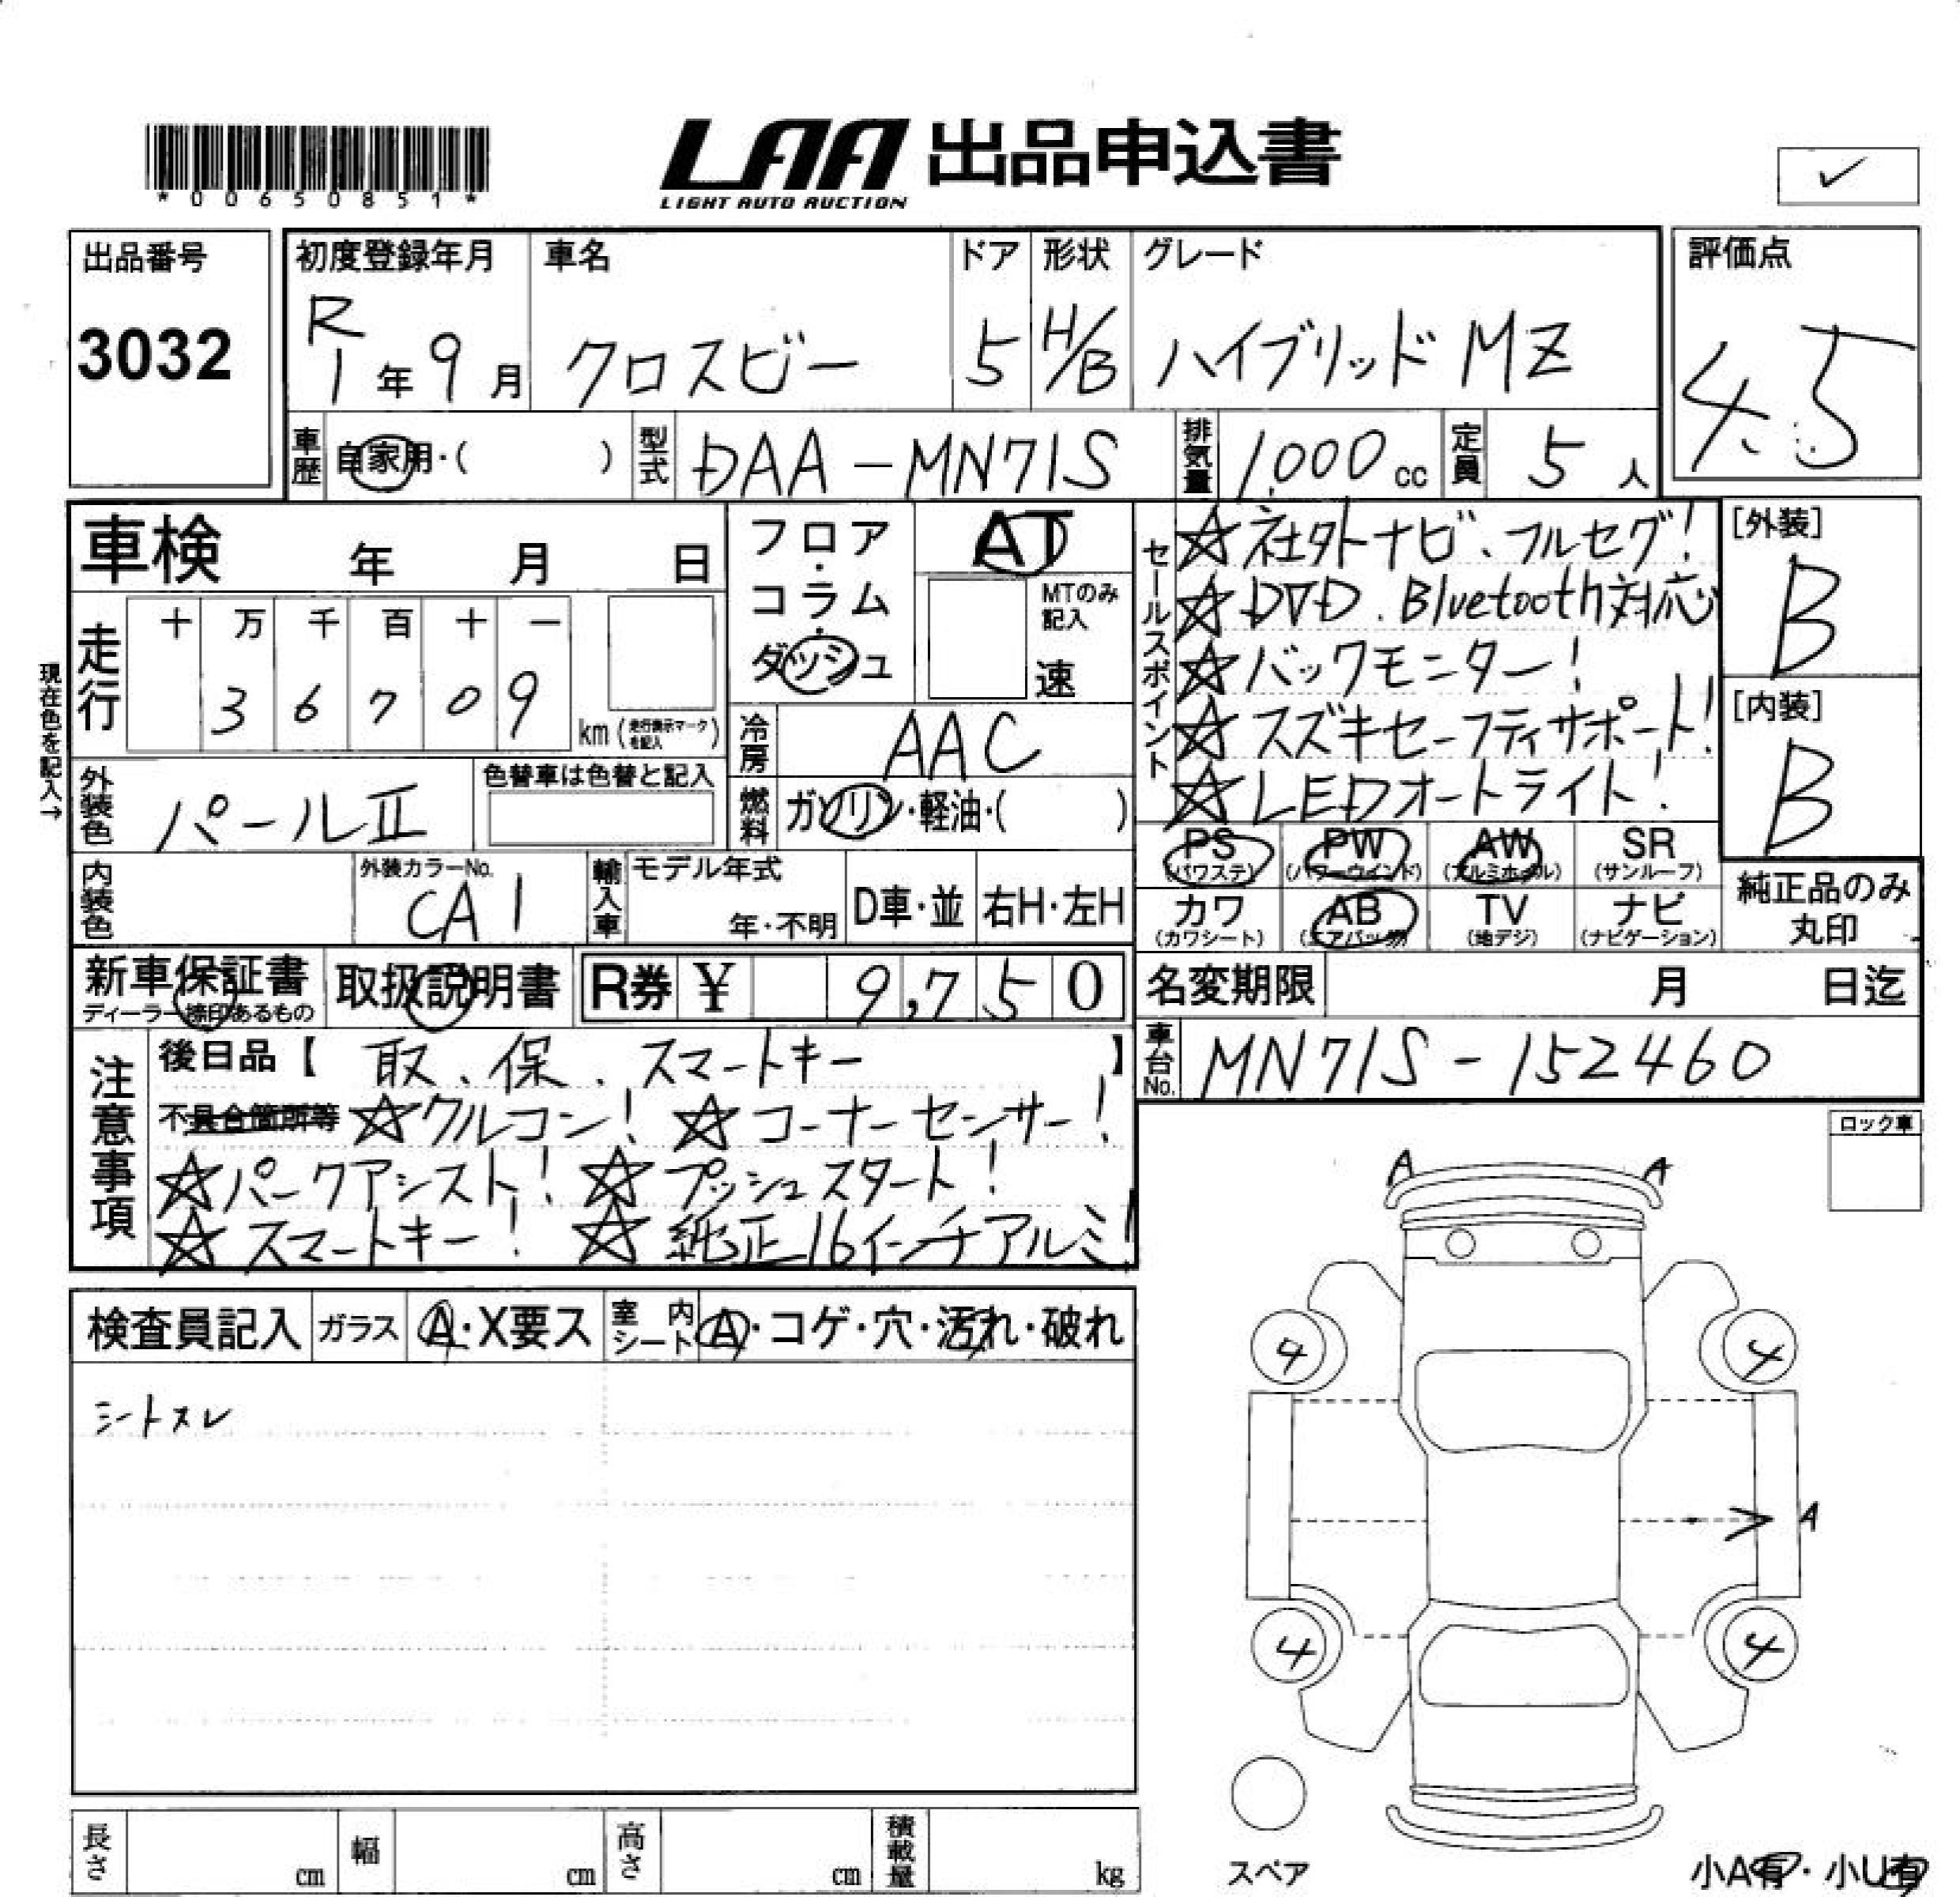 *00650851*
LAA 出品申込書
LIGHT AUTO AUCTION
✓
出品番号
3032
初度登録年月
R1年9月
車名
クロスビー
ドア
5
形状
H/B
グレード
ハイブリッド MZ
評価点
4.5
車歴 自家用・( )
型式 DAA-MN71S
排気量 1,000cc
定員 5人
車検 年 月 日
フロア・コラム・ダッシュ
AT
MTのみ記入
速
セールスポイント
☆社外ナビ、フルセグ!
☆DVD、Bluetooth対応
☆バックモニター!
☆スズキセーフティサポート!
☆LEDオートライト!
[外装]
B
[内装]
B
現在色を記入→
走行
十 万 千 百 十 一
3 6 7 0 9
km (走行表示マークを記入)
冷房 AAC
外装色 パールⅡ
色替車は色替と記入
燃料 ガソリン・軽油・( )
PS (パワステ)
PW (パワーウインド)
AW (アルミホイル)
SR (サンルーフ)
内装色
外装カラーNo.
CA1
輸入車
モデル年式
年・不明
D車・並
右H・左H
カワ (カワシート)
AB (エアバッグ)
TV (地デジ)
ナビ (ナビゲーション)
純正品のみ丸印
新車保証書
ディーラー捺印あるもの
取扱説明書
R券 ¥ 9,750
名変期限 月 日迄
車台No. MN71S-152460
注意事項
後日品【 取、保、スマートキー 】
不具合箇所等 ☆クルコン! ☆コーナーセンサー!
☆パークアシスト! ☆プッシュスタート!
☆スマートキー! ☆純正16インチアルミ!
ロック車
A A
検査員記入
ガラス A・X要ス
室内シート A・コゲ・穴・汚れ・破れ
シートスレ
4 4
A
4 4
スペア
長さ cm
幅 cm
高さ cm
積載量 kg
小A有・小U有